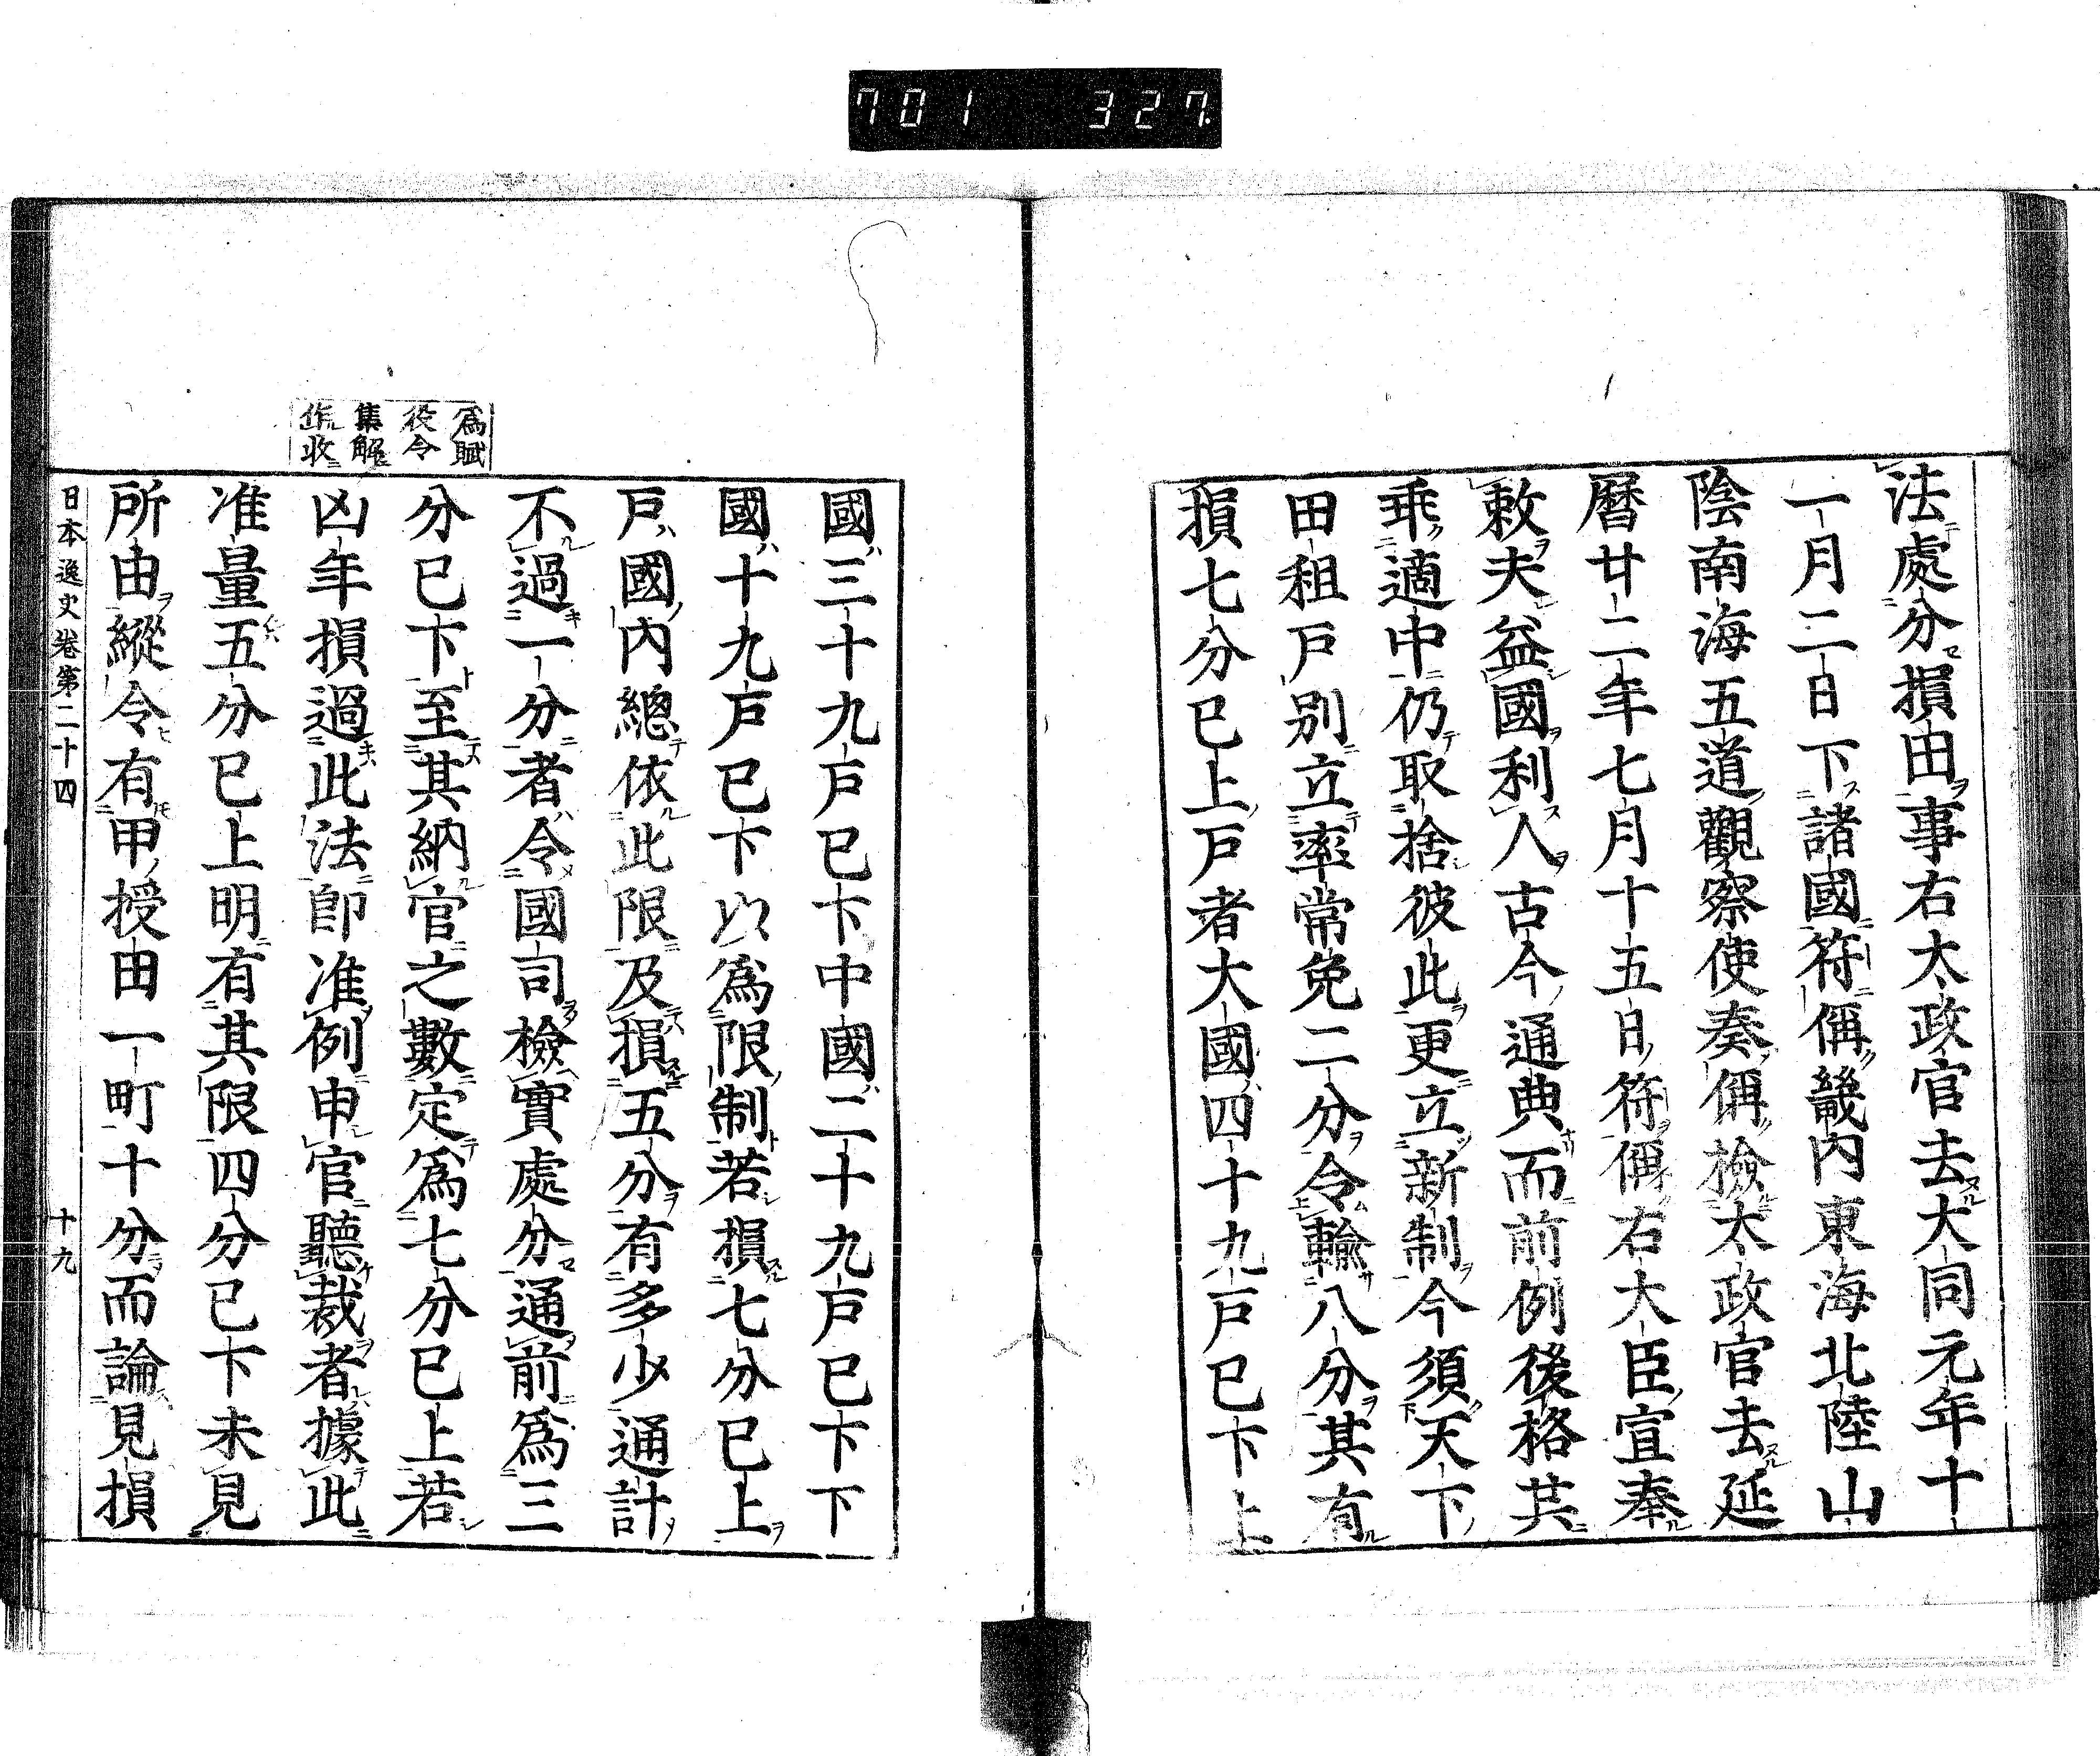 701 327
法處分損田事右太政官去大同元年十
一月二日下諸國符偁畿内東海北陸山
陰南海五道觀察使奏偁檢太政官去延
曆廿二年七月十五日符偁右大臣宣奉
敕夫益國利人古今通典而前例後格共
乖適中仍取捨彼此更立新制今須天下
田租戸別立率常免二分令輸八分其有
損七分已上戸者大國四十九戸已下上
國三十九戸已下中國二十九戸已下下
國十九戸已下以爲限制若損七分已上
戸國内總依此限及損五分有多少通計
不過一分者令國司檢實處分通前爲三
分已下至其納官之數定爲七分已上若
凶年損過此法即准例申官聽裁者據此
准量五分已上明有其限四分已下未見
所由縱令有甲授田一町十分而論見損
爲賦
役令
集解
作收
日本逸史卷第二十四 十九